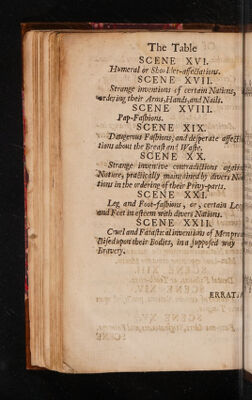 The Table
SCENE XVI.
Humeral or Shoulder-affectations.
SCENE XVII.
Strange inventions of certain Nations,
ordering their Arms, Hands, and Nails.
SCENE XVIII.
Pap-Fashions.
SCENE XIX.
Dangerous Fashions, and desperate affecta
tions about the Breast and Waste.
SCENE XX.
Strange inventive contradictions against
Nature, practically maintained by divers Na
tions in the ordering of their Privy-parts.
SCENE XXI.
Leg and Foot-fashions, or, certain Leg
and Feet in esteem with divers Nations.
SCENE XXII.
Cruel and Fantastical inventions of Men pra
ctised upon their Bodies, in a supposed way
Bravery.
ERRAT